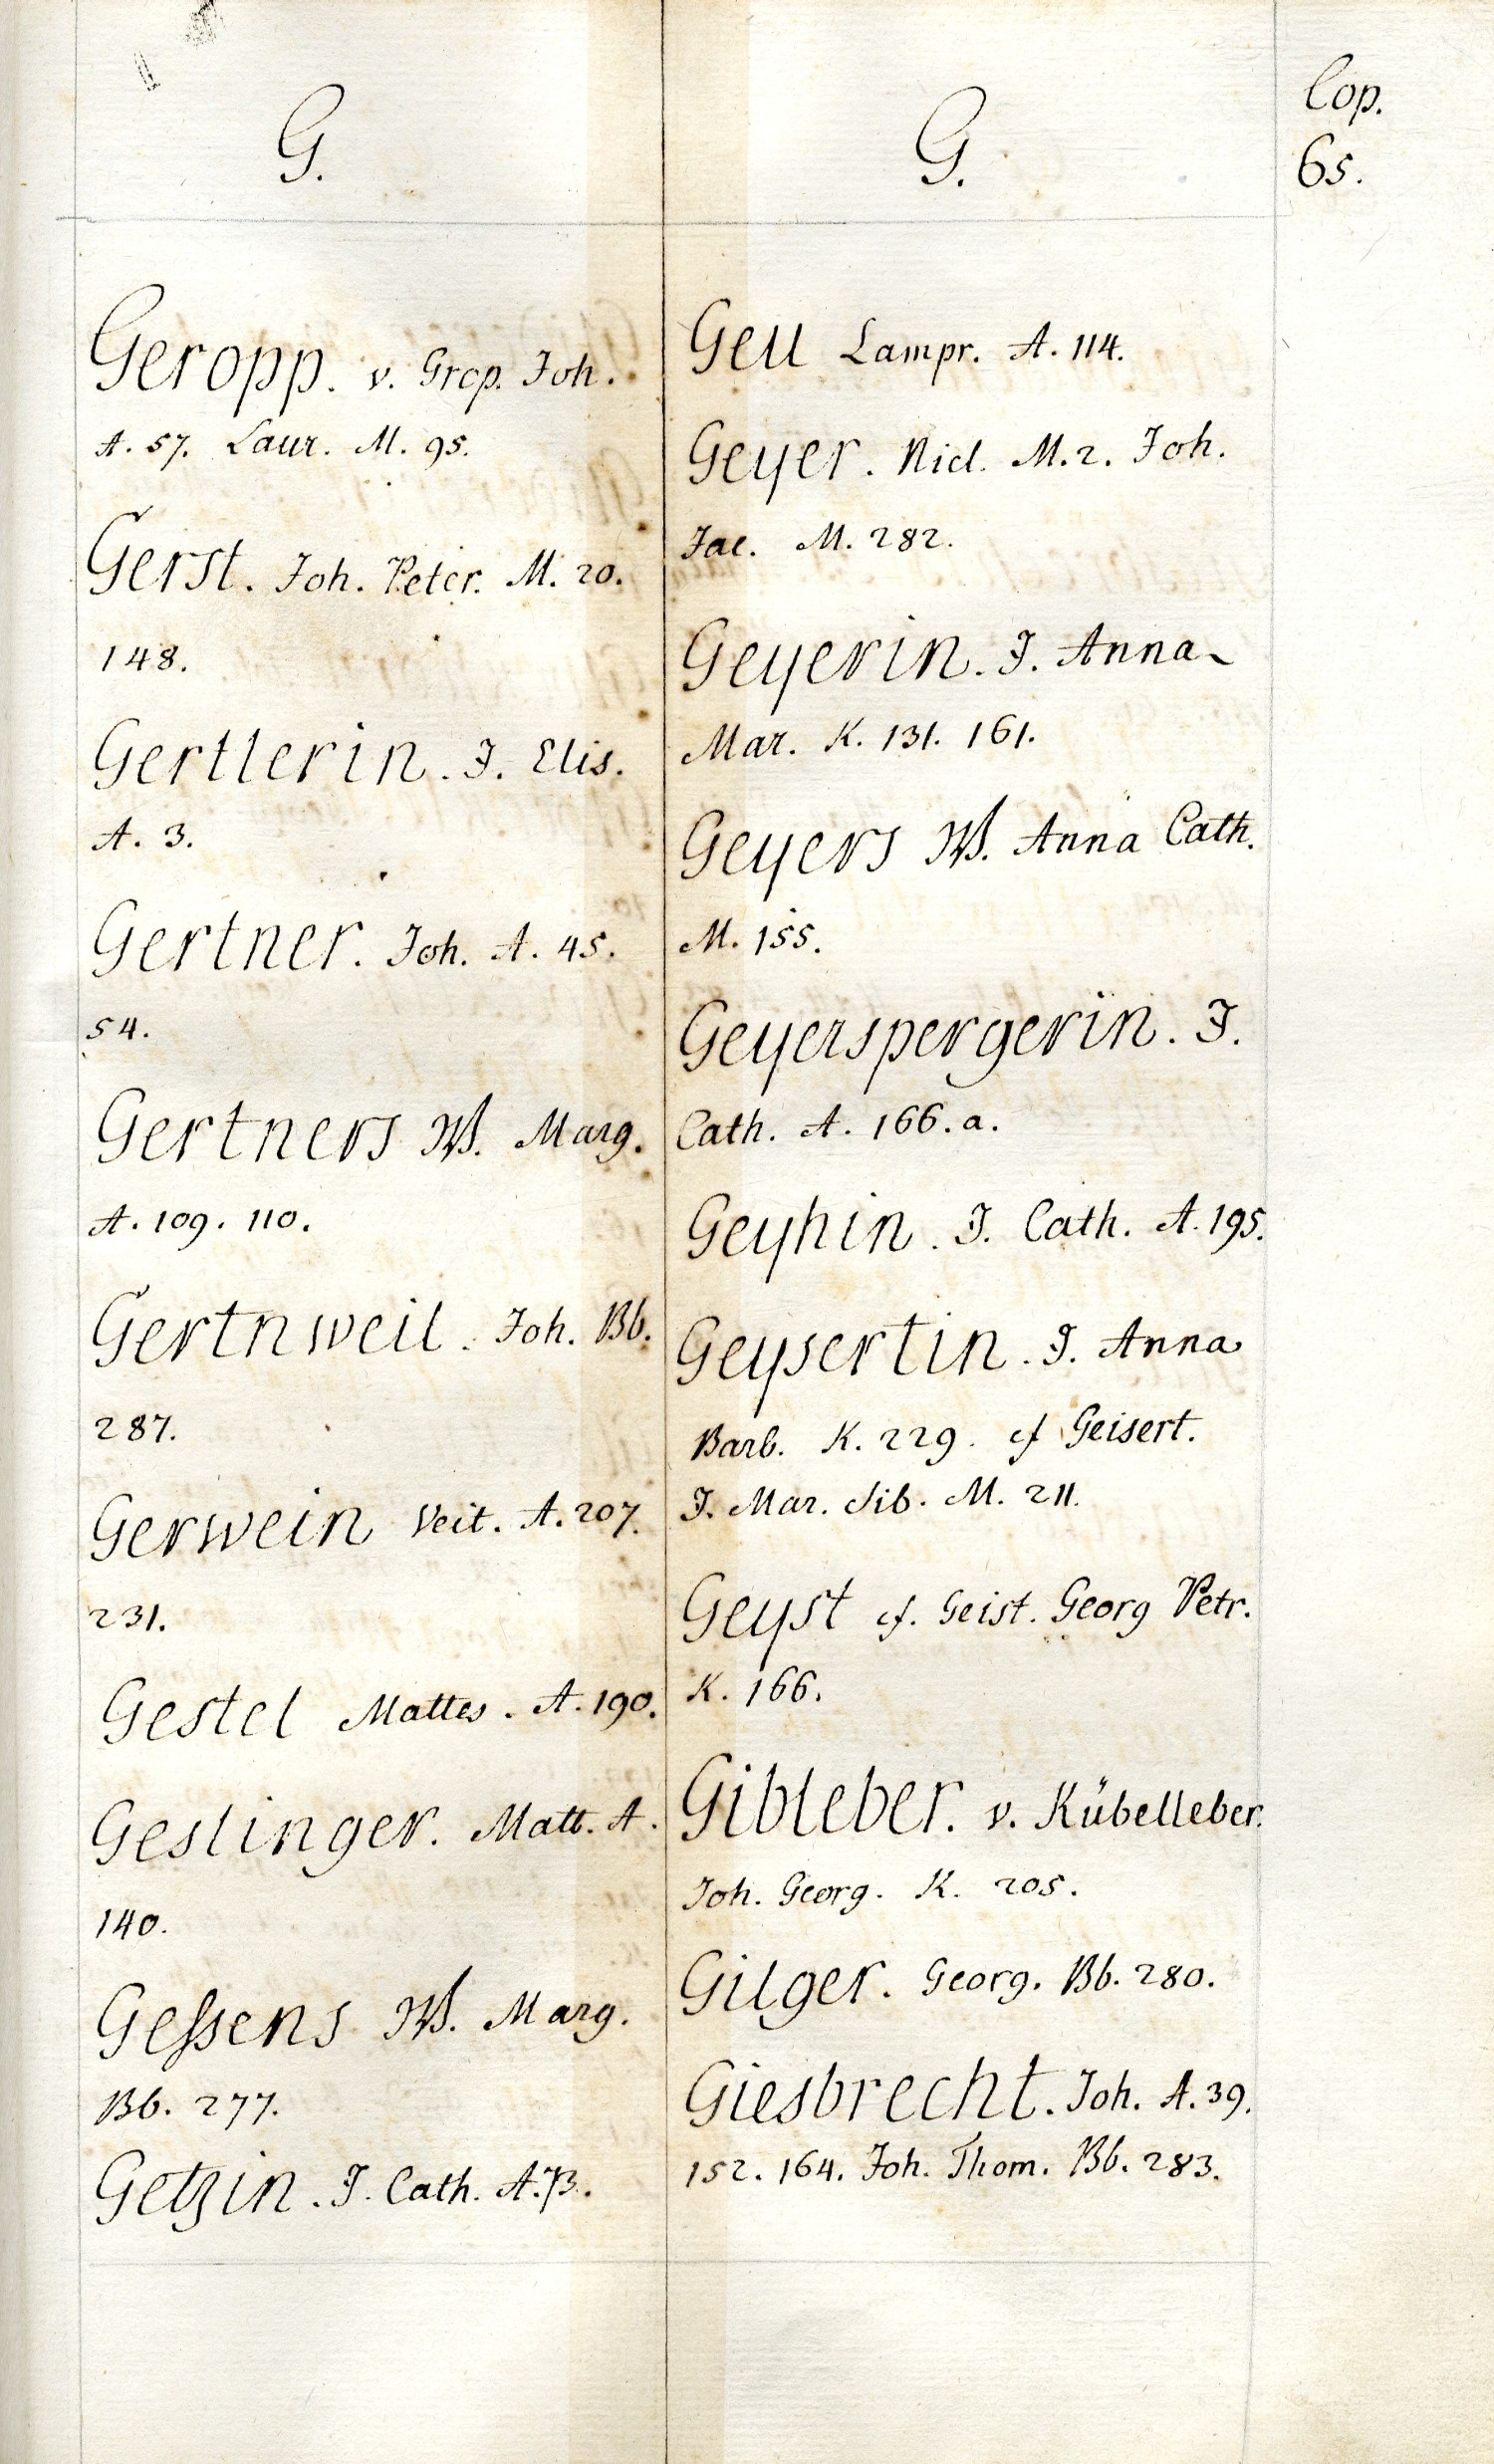 Cop.
65.
G.
Geropp. v. Grop. Joh.
A. 57. Laur. M. 95.
Gerst. Joh. Peter. M. 20.
148.
Gertlerin. J. Elis.
A. 3.
Gertner. Joh. A. 45.
54.
Gertners W. Marg.
A. 109. 110.
Gertnweil. Joh. Bb.
287.
Gerwein Veit. A. 207.
231.
Gestel Mattes. A. 190.
Geslinger. Matt. A.
140.
Geſsens W. Marg.
Bb. 277.
Getzin. J. Cath. A.
G.
Geu Lampr. A. 114.
Geyer. Nicl. M. 2. Joh.
Jac. M. 282.
Geyerin. J. Anna
Mar. K. 131. 161.
Geyers W. Anna Cath.
M. 155.
Geyerspergerin. J.
Cath. A. 166. a.
Geyhin. J. Cath. A. 195.
Geysertin. J. Anna
Barb. K. 229. cf Geisert.
J. Mar. Sib. M. 211.
Geyst cf. Geist. Georg Petr.
K. 166.
Gibleber. v. Kübelleber.
Joh. Georg. K. 205.
Gilger. Georg. Bb. 280.
Giesbrecht. Joh. A. 39.
152. 164. Joh. Thom. Bb. 283.